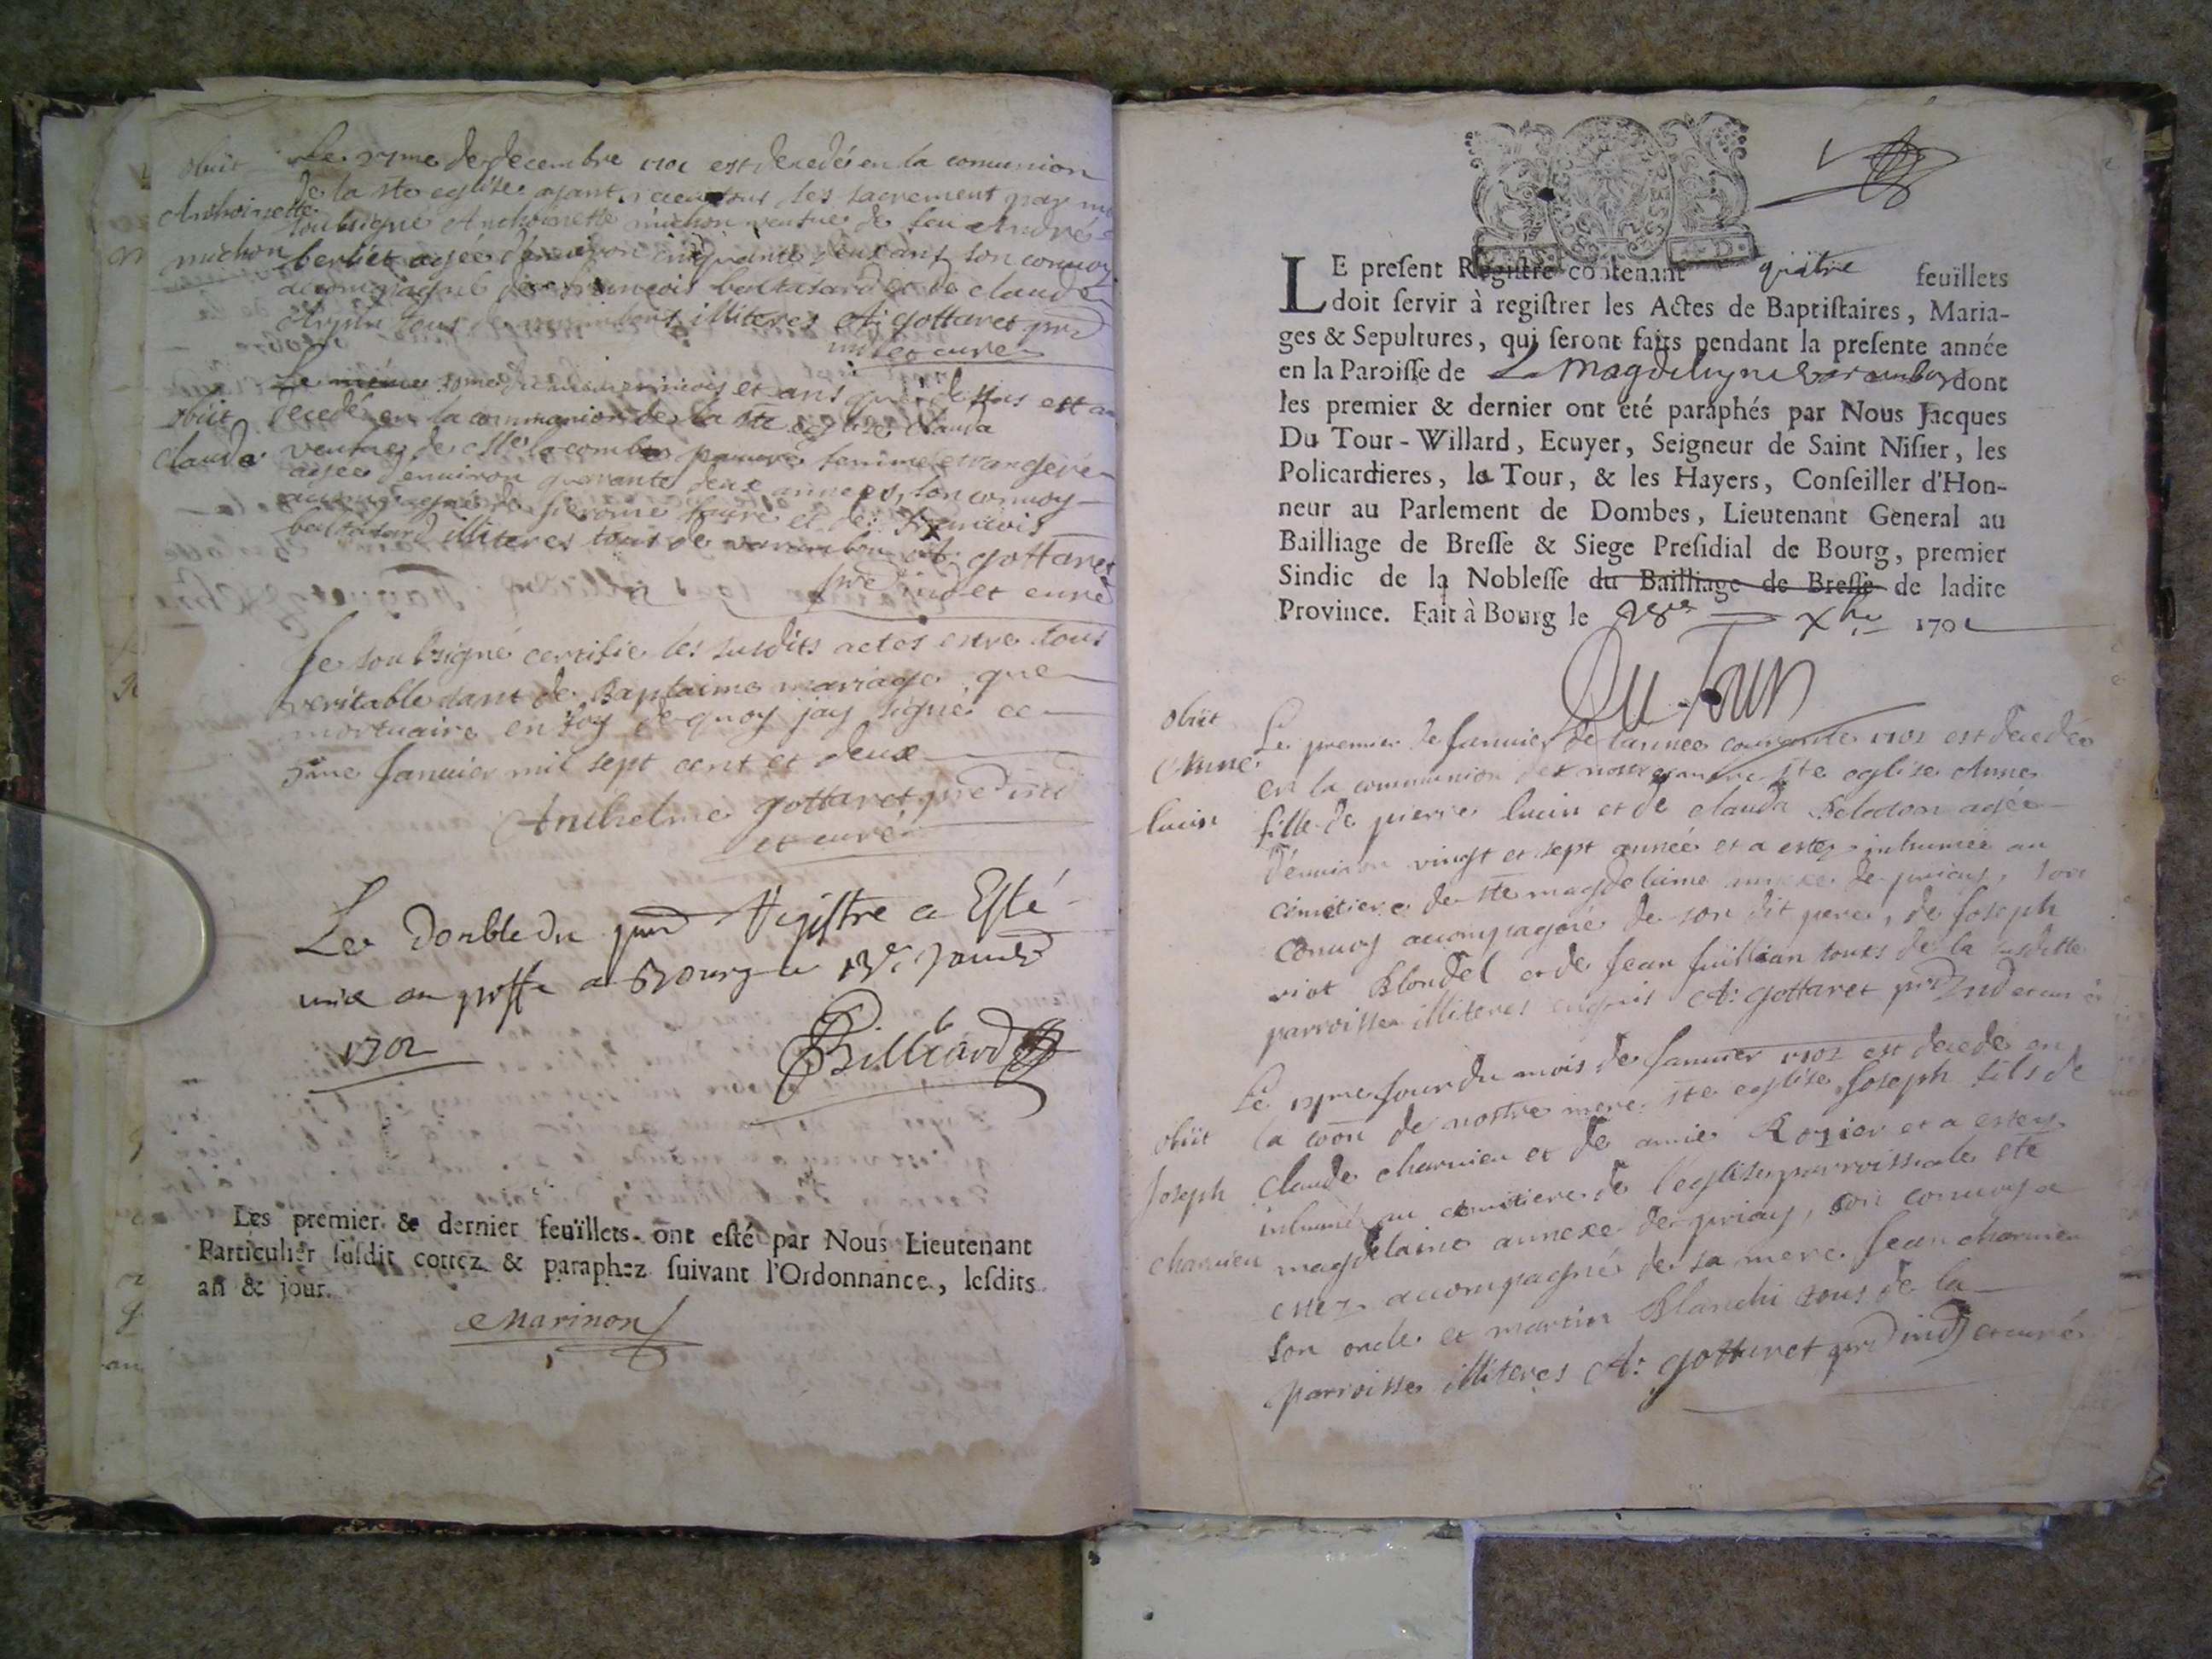 obiit
Anthoinette
michon
Le me de decembre 1701 est decedé en la comunion
de la ste eglise ayant tous les sacrement par
soubsigné Anthoinette michon veufue de feu André
berliet agée denviron cinquante deux ans son conuoy
accompagné de françois baltasard et de claude
tous de illiteres A: gottaret prd
ind et curé
obiit
clauda
Le mois et ans que dessus est
decedé en la communion de la ste eglise Clauda
veufue de lacombe pauure femme etrangere
agée denviron quarante deux années, son conuoy
accompagné de Jerome faure et de françois
baltasard illiteres tous de varambon A: gottaret
prd ind et curé
Je soubsigné certifie les susdits actes estre tous
veritable tant de Baptaime mariage que
mortuaire en foy de quoy jay signé ce
Januier mil sept cent et deux
Anthelme gottaret prd ind
et curé
Le double du pnt Registre a Esté
mis au greffe a Bourg ce
1702
Billiard
Les premier & dernier feuïllets ont eſté par Nous Lieutenant
Particulier ſuſdit cottez & paraphez ſuivant l'Ordonnance, leſdits
an & jour.
Marinon
LE preſent Regiſtre contenant quatre feuïllets
doit ſervir à regiſtrer les Actes de Baptiſtaires, Maria-
ges & Sepultures, qui ſeront faits pendant la preſente année
en la Paroiſſe de La dont
les premier & dernier ont été paraphés par Nous Jacques
Du Tour-Willard, Ecuyer, Seigneur de Saint Niſier, les
Policardieres, la Tour, & les Hayers, Conſeiller d'Hon-
neur au Parlement de Dombes, Lieutenant General au
Bailliage de Breſſe & Siege Preſidial de Bourg, premier
Sindic de la Nobleſſe du Bailliage de Breſſe de ladite
Province. Fait à Bourg le 28 xbre 1701
Du Tour
obiit
Anne
lucin
Le premier de Januier de lannée courante 1702 est decedée
en la communion de nostre mere ste eglise Anne
fille de pierre lucin et de clauda agée
denuiron vingt et sept année et a estez inhumée au
cimetiere de ste magdelaine annexe de priay, son
conuoy accompagné de son dit pere, de Joseph
viot Blondel et de Jean Juillian touts de la susditte
parroisse illiteres enquis A: gottaret prd Ind et curé
obiit
Joseph
charuieu
Le Jour du mois de Januier 1702 est decedé en
la coon de nostre mere ste eglise Joseph fils de
Claude charuieu et de Rozier et a estez
inhumé au cimitiere de l'eglise parroissiale ste
magdelaine annexe de priay, son conuoy a
estez accompagné de sa mere Jean charuieu
son oncle et martin Blanchi tous de la
parroisse illiteres A: gottaret prd ind et curé